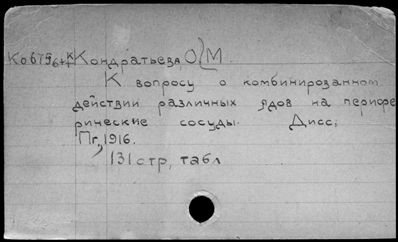 Кондратьева, О. М.
К вопросу о комбинированном
действии различных ядов на перифе
рические сосуды. Дисс;
Пг, 1916.
131 стр, табл